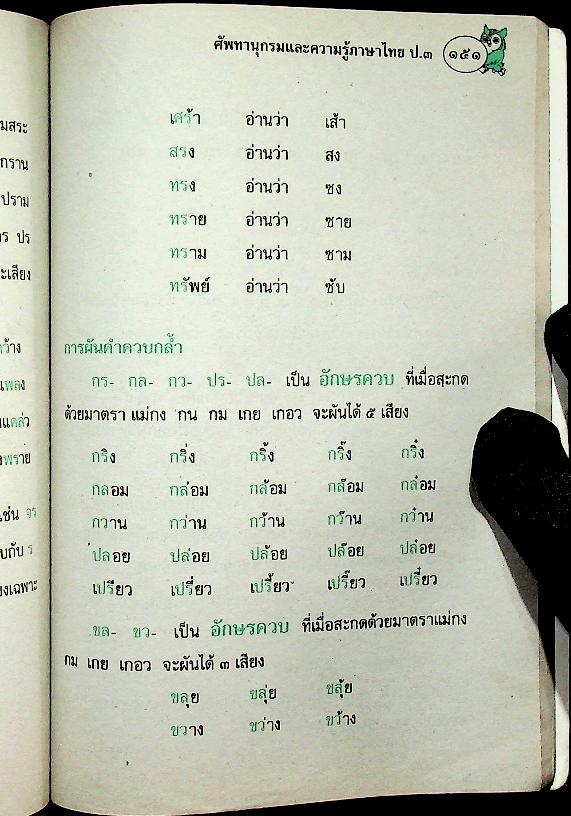 ศัพทานุกรมและความรู้ภาษาไทย ป.๓ ๑๕๑
เศร้า อ่านว่า เส้า
สรง อ่านว่า สง
ทรง อ่านว่า ซง
ทราย อ่านว่า ซาย
ทราม อ่านว่า ซาม
ทรัพย์ อ่านว่า ซับ
การผันคำควบกล้ำ
กร- กล- กว- ปร- ปล- เป็น อักษรควบ ที่เมื่อสะกด
ด้วยมาตรา แม่กง กน กม เกย เกอว จะผันได้ ๕ เสียง
กริง กริ่ง กริ้ง กริ๊ง กริ๋ง
กลอม กล่อม กล้อม กล๊อม กล๋อม
กวาน กว่าน กว้าน กว๊าน กว๋าน
ปลอย ปล่อย ปล้อย ปล๊อย ปล๋อย
เปรียว เปรี่ยว เปรี้ยว เปรี๊ยว เปรี๋ยว
ขล- ขว- เป็น อักษรควบ ที่เมื่อสะกดด้วยมาตราแม่กง
กม เกย เกอว จะผันได้ ๓ เสียง
ขลุย ขลุ่ย ขลุ้ย
ขวาง ขว่าง ขว้าง
มสระ
กราน
ปราม
ร ปร
ะเสียง
ว้าง
เพลง
แคล่ว
พราย
เช่น จร
บกับ ร
งเฉพาะ